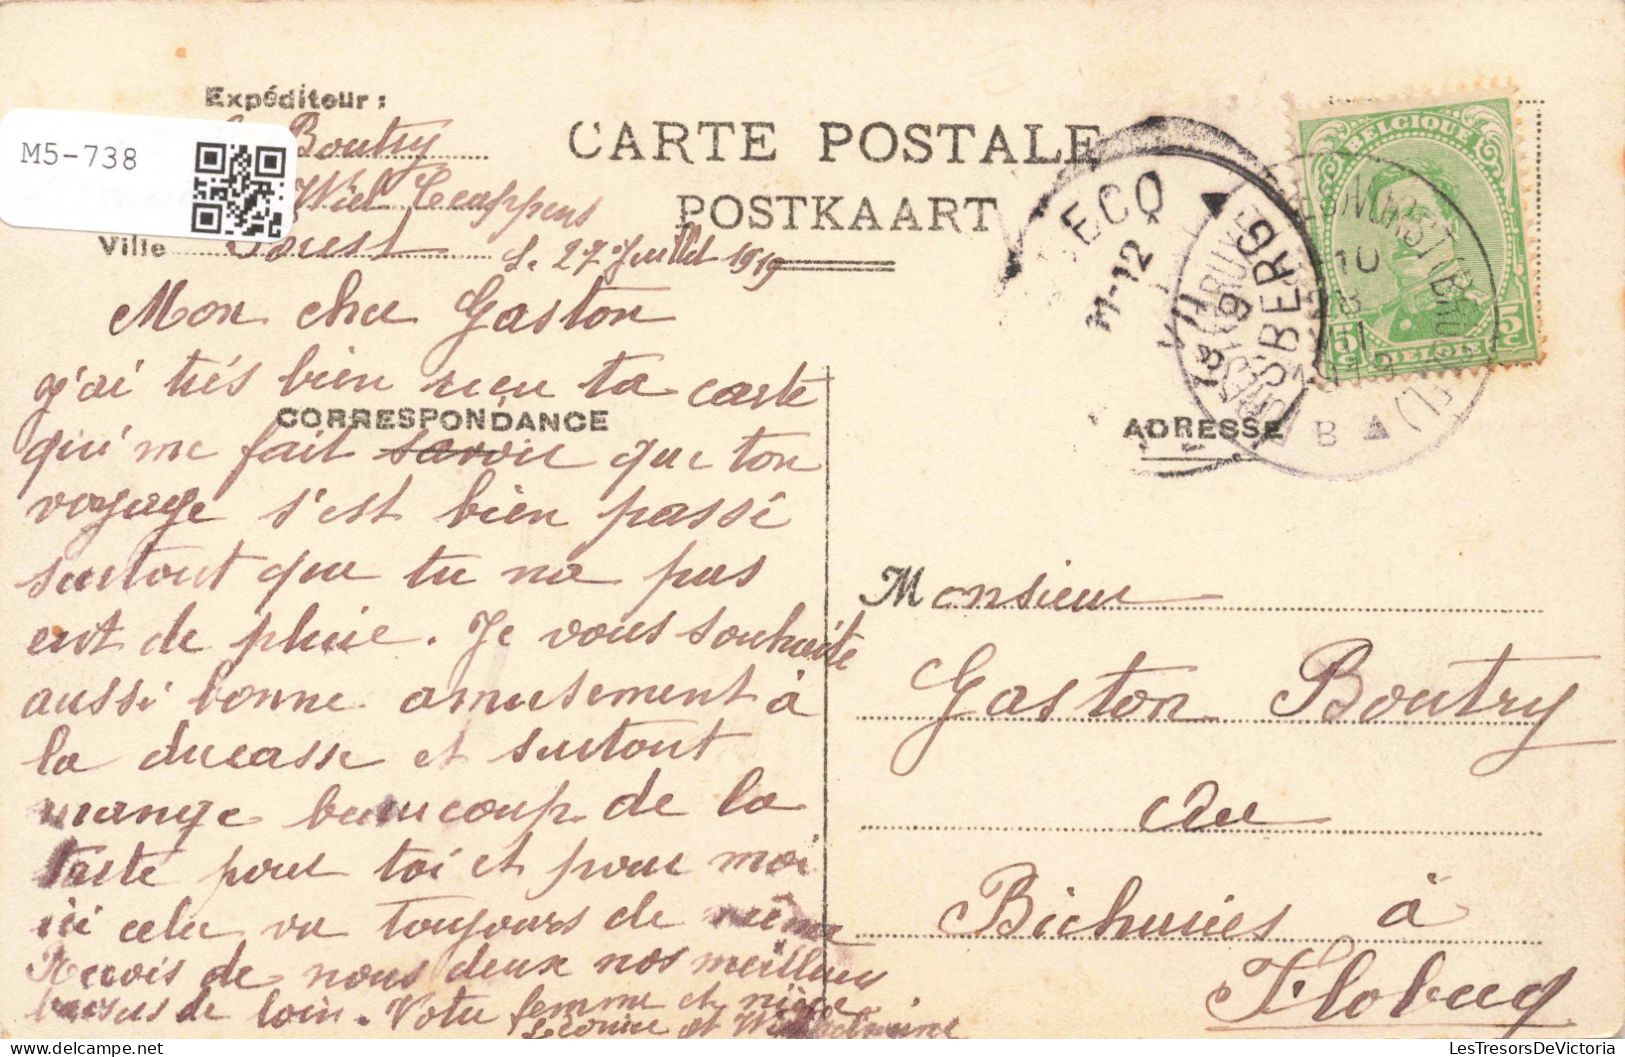 M5-738
Expéditeur :
Boutry
Wiel Ceuppens
Ville Forest
CARTE POSTALE
POSTKAART
Le 27 Juillet 1919
BELGIQUE
5c 5c
BELGIE
11-12
VII
10
B
CORRESPONDANCE
ADRESSE
Mon cher Gaston
j'ai très bien reçu ta carte
qui me fait savoir que ton
voyage s'est bien passé
surtout que tu na pas
eut de pluie. Je vous souhaite
aussi bonne amusement à
la ducasse et surtout
mange beaucoup de la
tarte pour toi et pour moi
ici cela va toujours de même
Reçois de nous deux nos meilleurs
baisers de loin. Votre femme et nièce
Léonie et Wilhelmine
Monsieur
Gaston Boutry
au
Bichuries à
Flobecq
LesTresorsDeVictoria